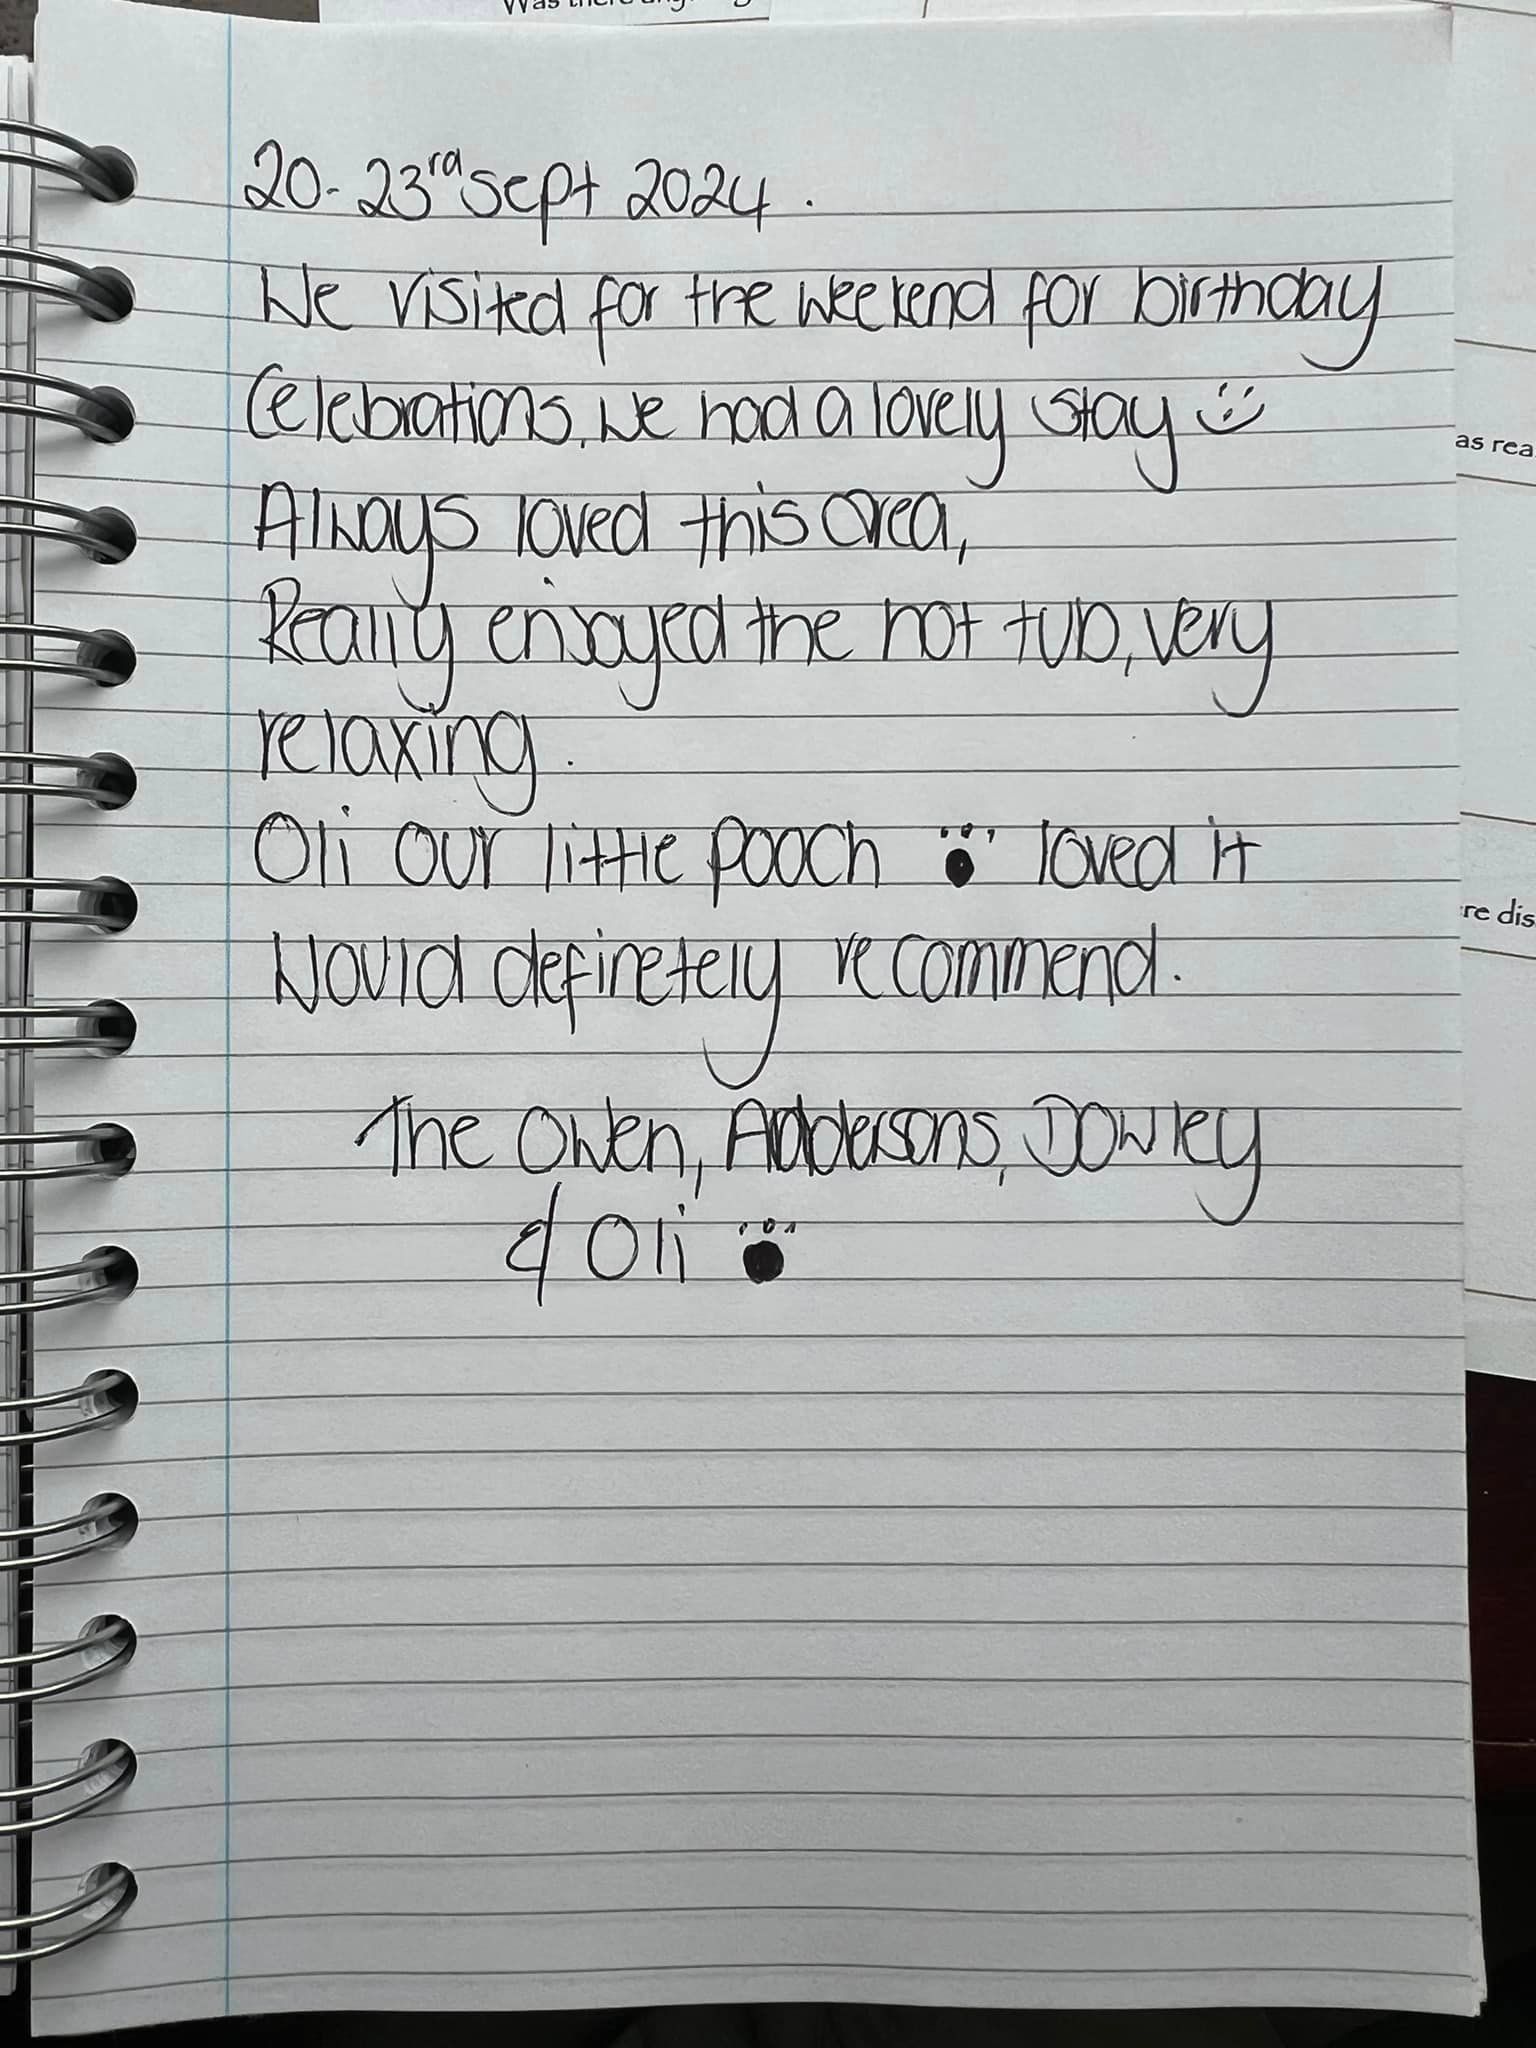 Was there anything
20-23rd Sept 2024.
We visited for the weekend for birthday
Celebrations, we had a lovely stay
Always loved this area,
Really enjoyed the hot tub, very
relaxing.
Oli our little pooch loved it
Would definetely recommend.
The Owen, Addersons, Dowley
& Oli
as rea
re dis